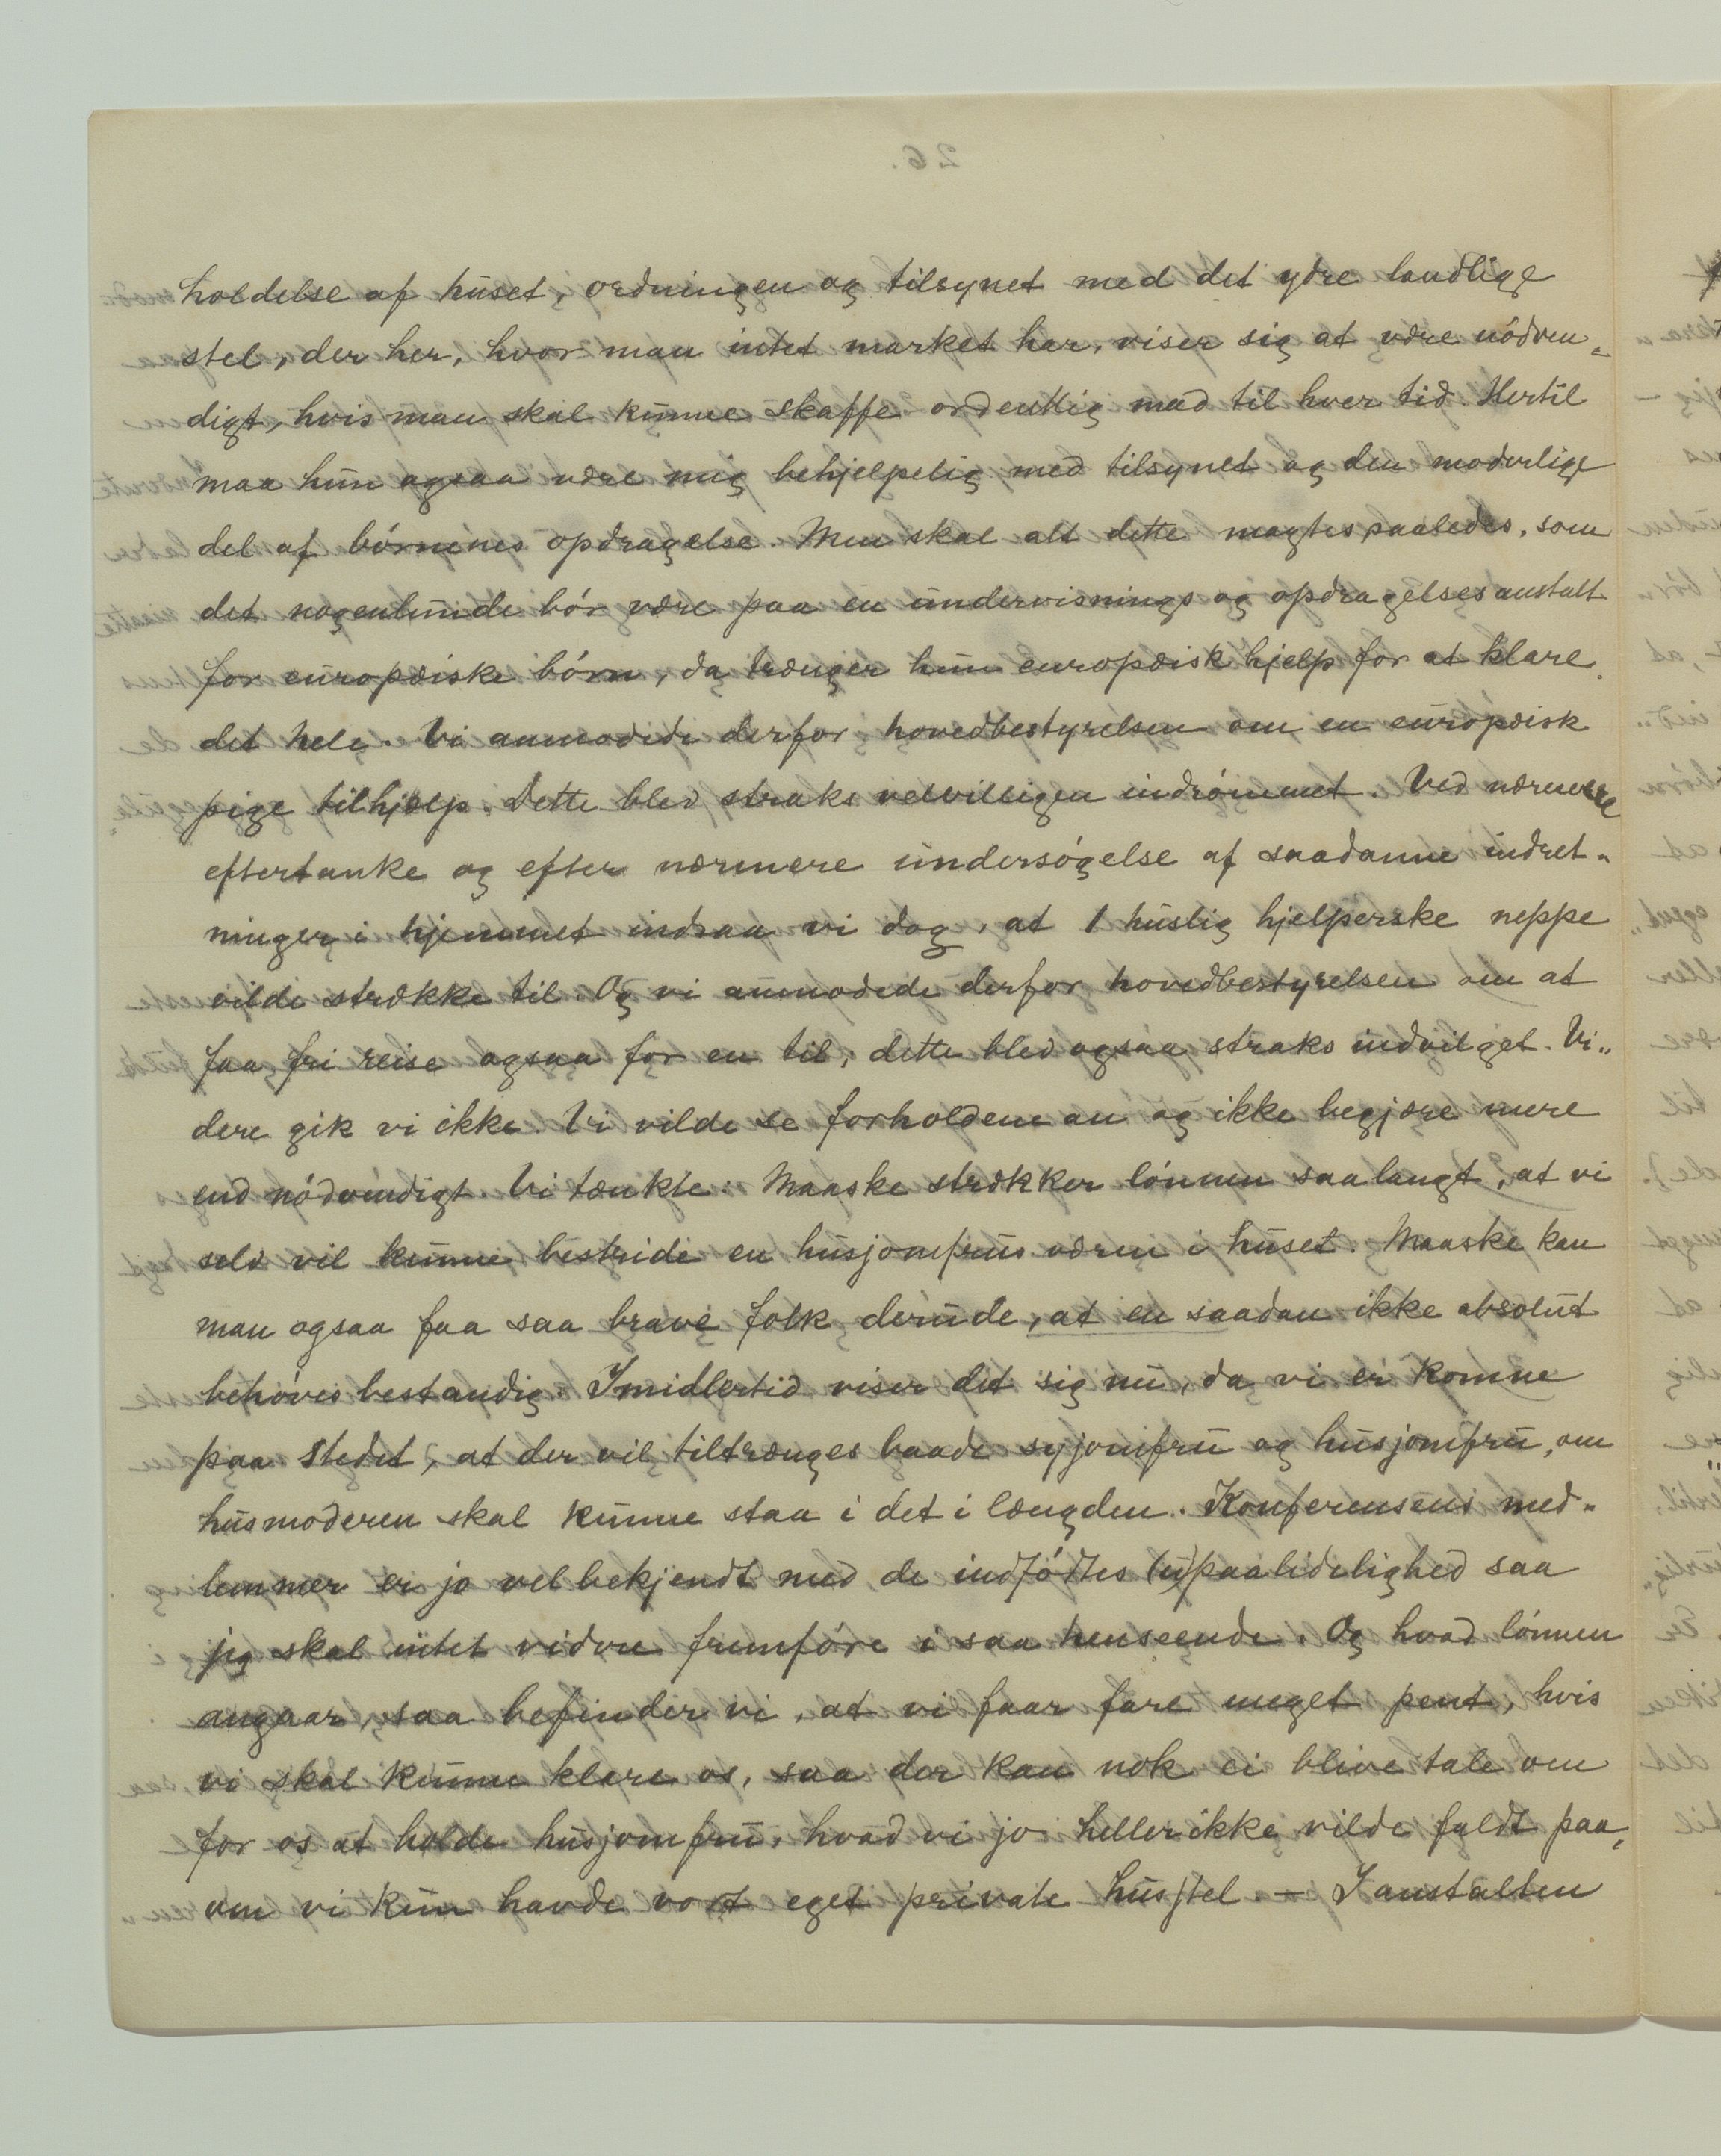 holdelse af huset, ordningen og tilsynet med det ydre landlige
stel, der her, hvor man intet market har, viser sig at være nödven„
digt, hvis man skal kunne skaffe ordentlig mad til hver tid. Hertil
maa hun ogsaa være mig behjelpelig med tilsynet og den moderlige
del af börnenes opdragelse. Men skal alt dette magtes saaledes, som
det nogenlunde bör være paa en undervisnings og opdragelsesanstalt
for europæiske börn, da trænger hun europæisk hjelp for at klare
det hele. Vi anmodede derfor hovedbestyrelsen om en europæisk
pige tilhjælp. Dette blev straks velvilligen indrömmet. Ved nærmere
eftertanke og efter nærmere undersögelse af saadanne indret„
ninger i hjemmet indsaa vi dog, at 1 huslig hjelperske neppe
vilde strække til. Og vi anmodede derfor hovedbestyrelsen om at
faa fri reise ogsaa for en til; dette blev ogsaa straks indvilget. Vi„
dere gik vi ikke. Vi vilde se forholdene an og ikke begjære mere
end nödvendigt. Vi tænkte: Maaske strækker lönnen saa langt, at vi
selv vil kunne bestride en husjomfrus værm i huset. Maaske kan
man ogsaa faa saa brave folk derude, at en saadan ikke absolut
behöves bestandig. Imidlertid viser det sig nu, da vi er komne
paa stedet, at der vil tiltrænges baade syjomfru og husjomfru, om
husmoderen skal kunne staa i det i længden. Konferensens med„
lemmer er jo vel bekjendt med de indfödtes (u)paalidelighed saa
jeg skal intet videre fremföre i saa henseende. Og hvad lönnen
angaar, saa befinder vi, at vi faar fare meget pent, hvis
vi skal kunne klare os, saa der kan nok ei blive tale om
for os at holde husjomfru, hvad vi jo heller ikke vilde faldt paa,
om vi kun havde vort eget private husstel. — I anstalten